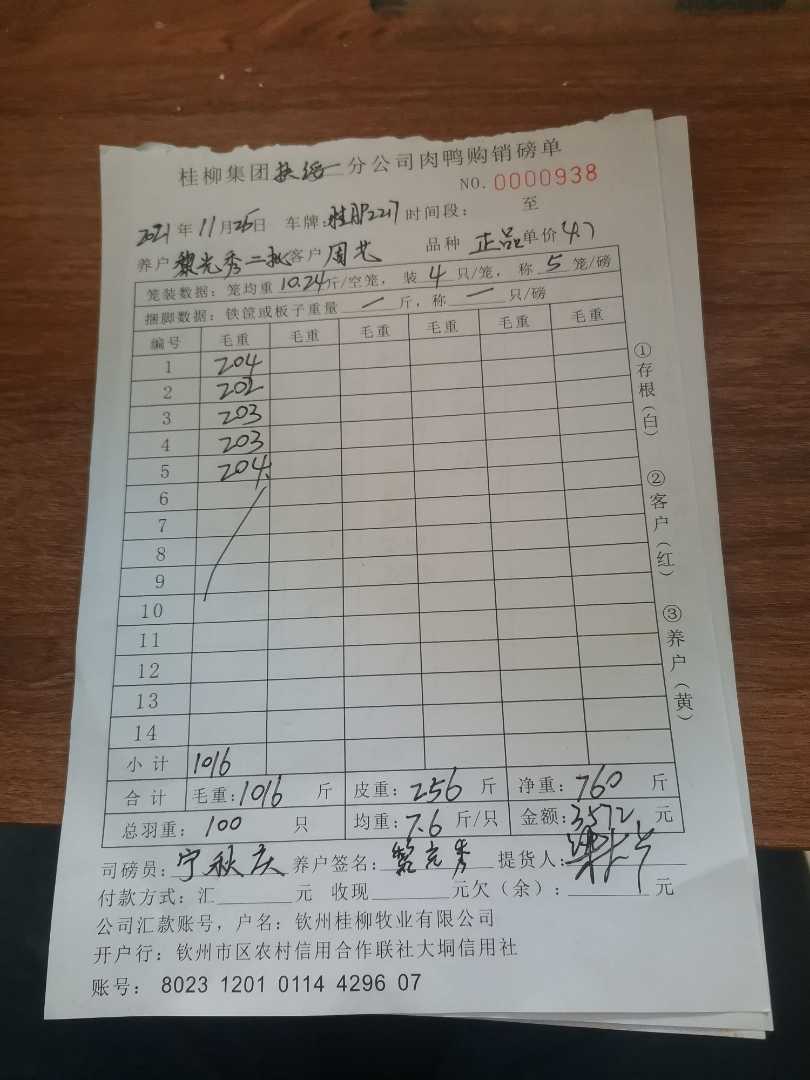 桂柳集团扶绥分公司肉鸭购销磅单
NO. 0000938
2021年11月25日 车牌: 2217 时间段: 至
养户黎光秀二批客户周艺 品种 正品单价4.7
笼装数据: 笼均重10.24斤/空笼, 装4只/笼, 称5笼/磅
捆脚数据: 铁筐或板子重量 — 斤, 称 — 只/磅
编号 毛重 毛重 毛重 毛重 毛重 毛重
1 204
2 202
3 203
4 203
5 204
6
7
8
9
10
11
12
13
14
小计 1016
合计 毛重:1016 斤 皮重:256 斤 净重:760 斤
总羽重: 100 只 均重:7.6 斤/只 金额:3572 元
司磅员: 宁秋庆 养户签名: 黎光秀 提货人:
付款方式: 汇 元 收现 元欠(余): 元
公司汇款账号, 户名: 钦州桂柳牧业有限公司
开户行: 钦州市区农村信用合作联社大垌信用社
账号: 8023 1201 0114 4296 07
①存根(白) ②客户(红) ③养户(黄)